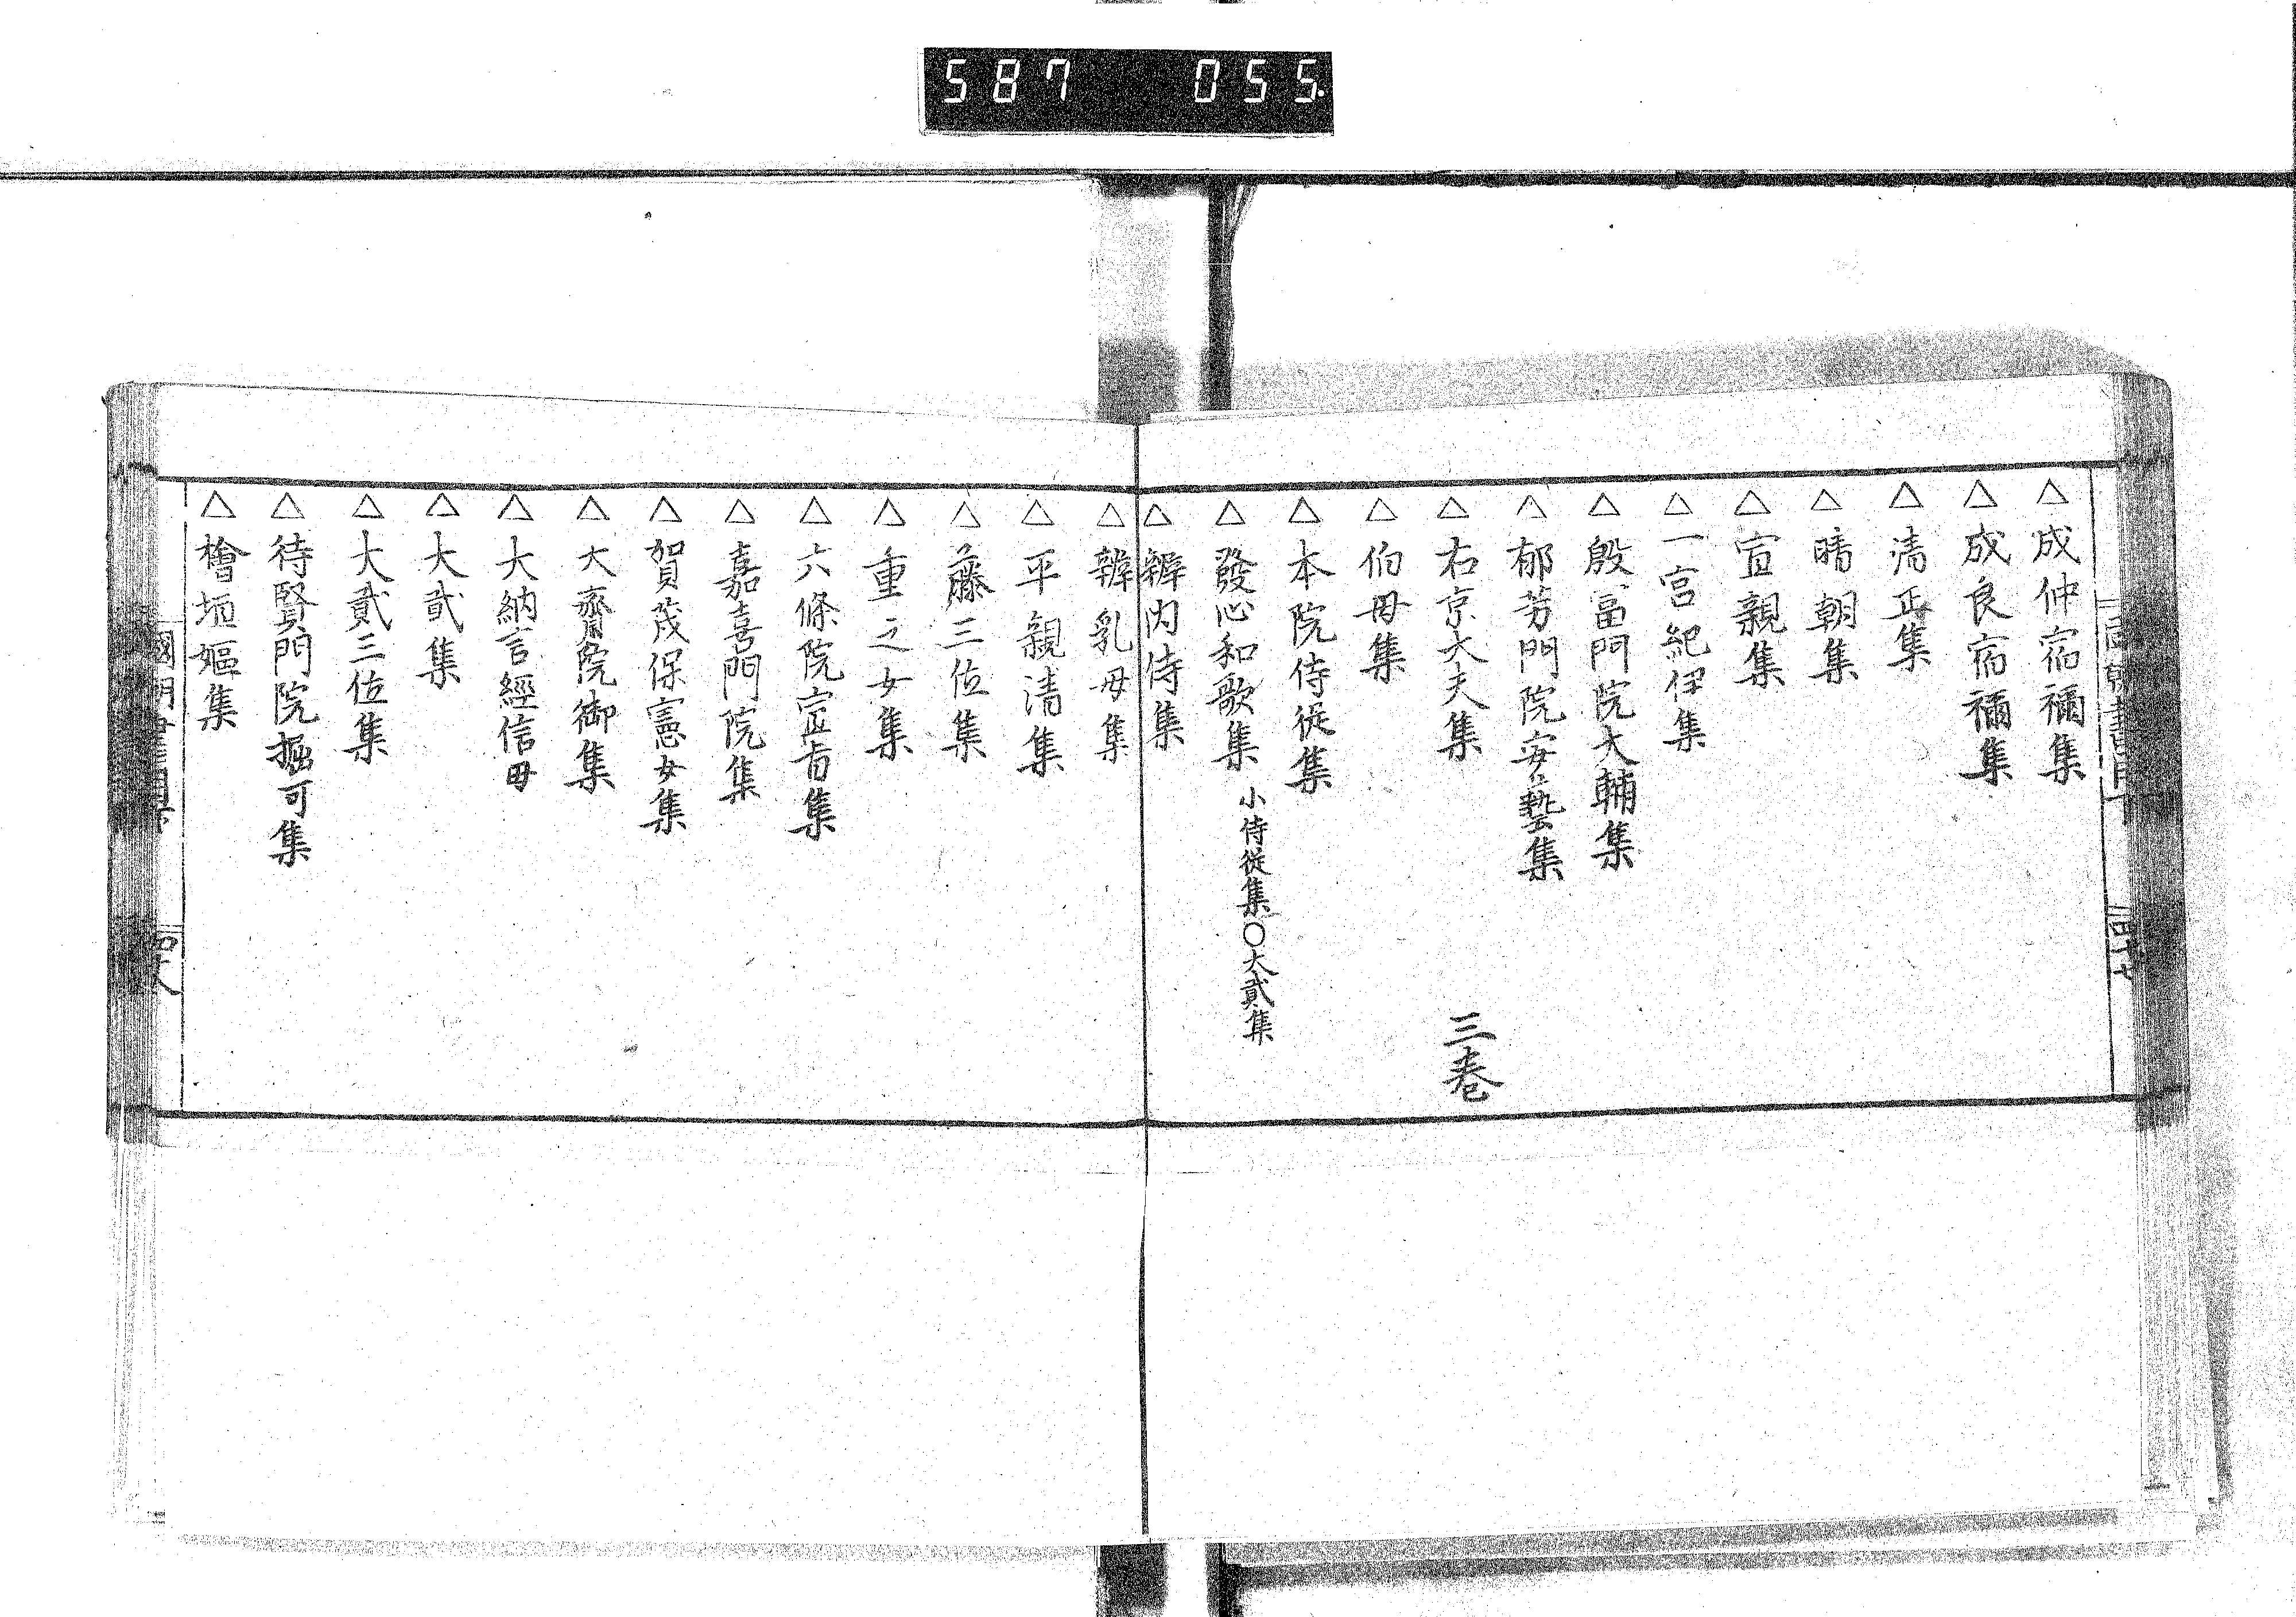 587 055.
△成仲宿禰集
△成良宿禰集
△清正集
△晴朝集
△宣親集
△一宮紀伊集
△殷富門院大輔集
△郁芳門院安藝集
△右京大夫集 三巻
△伯母集
△本院侍従集
△發心和歌集 小侍従集〇大貳集
△辨内侍集
△辨乳母集
△平親清集
△藤三位集
△重之女集
△六條院宣旨集
△嘉喜門院集
△賀茂保憲女集
△大齋院御集
△大納言經信母
△大貳集
△大貳三位集
△待賢門院堀可集
△檜垣嫗集